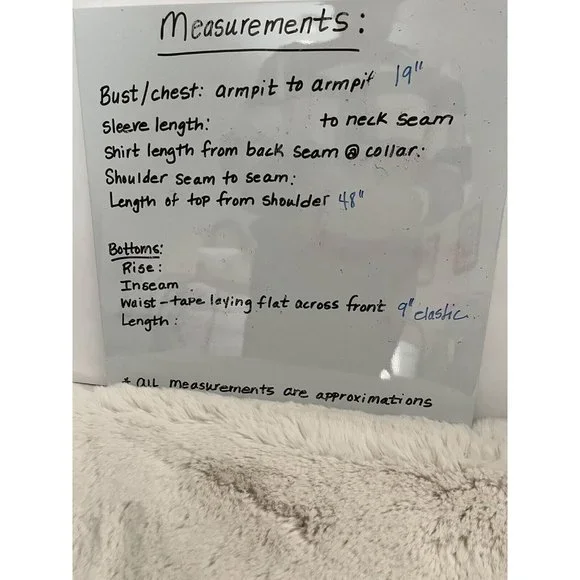 Measurements:
Bust/chest: armpit to armpit 19"
Sleeve length: to neck seam
Shirt length from back seam @ collar:
Shoulder seam to seam:
Length of top from shoulder 48"
Bottoms:
Rise:
Inseam
Waist-tape laying flat across front 9" elastic.
Length:
* all measurements are approximations